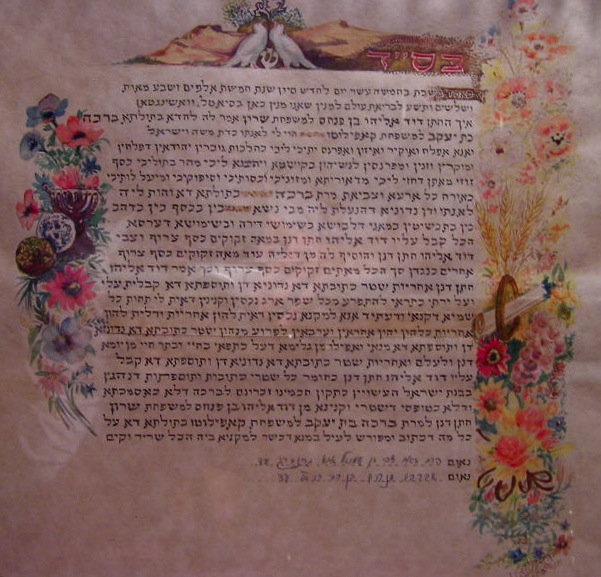 בס״ד
בשבת בחמשה עשר יום לחדש סיון שנת חמשת אלפים ושבע מאות
ושלשים ותשע לבריאת עולם למנין שאנו מנין כאן בסיאטל, וואשינגטאן
איך החתן דוד אליהו בן פנחס למשפחת שרון אמר לה להדא בתולתא ברכה
בת יעקב למשפחת קאפילוטו הוי לי לאנתו כדת משה וישראל
ואנא אפלח ואוקיר ואיזון ואפרנס יתיכי ליכי כהלכות גוברין יהודאין דפלחין
ומוקרין וזנין ומפרנסין לנשיהון בקושטא ויהיבנא ליכי מהר בתוליכי כסף
זוזי מאתן דחזי ליכי מדאוריתא ומזוניכי וכסותיכי וסיפוקיכי ומיעל לותיכי
כאורח כל ארעא וצביאת מרת ברכה בתולתא דא והות ליה
לאנתו ודן נדוניא דהנעלת ליה מבי נשא בין בכסף בין בדהב
בין בתכשיטין במאני דלבושא בשימושי דירה ובשימושא דערסא
הכל קבל עליו דוד אליהו חתן דנן במאה זקוקים כסף צרוף וצבי
דוד אליהו חתן דנן והוסיף לה מן דיליה עוד מאה זקוקים כסף צרוף
אחרים כנגדן סך הכל מאתים זקוקים כסף צרוף וכך אמר דוד אליהו
חתן דנן אחריות שטר כתובתא דא נדוניא דן ותוספתא דא קבלית עלי
ועל ירתי בתראי להתפרע מכל שפר ארג נכסין וקנינין דאית לי תחות כל
שמיא דקנאי ודעתיד אנא למקנא נכסין דאית להון אחריות ודלית להון
אחריות כלהון יהון אחראין וערבאין לפרוע מנהון שטר כתובתא דא נדוניא
דן ותוספתא דא מנאי ואפילו מן גלימא דעל כתפאי בחיי ובתר חיי מן יומא
דנן ולעלם ואחריות שטר כתובתא דא נדוניא דן ותוספתא דא קבל
עליו דוד אליהו חתן דנן כחומר כל שטרי כתובות ותוספתות דנהגן
בבנת ישראל העשויין כתקון חכמינו זכרונם לברכה דלא כאסמכתא
ודלא כטופסי דשטרי וקנינא מן דוד אליהו בן פנחס למשפחת שרון
חתן דנן למרת ברכה בת יעקב למשפחת קאפילוטו בתולתא דא על
כל מה דכתוב ומפורש לעיל במנא דכשר למקניא ביה הכל שריר וקים
נאום עד
נאום עד